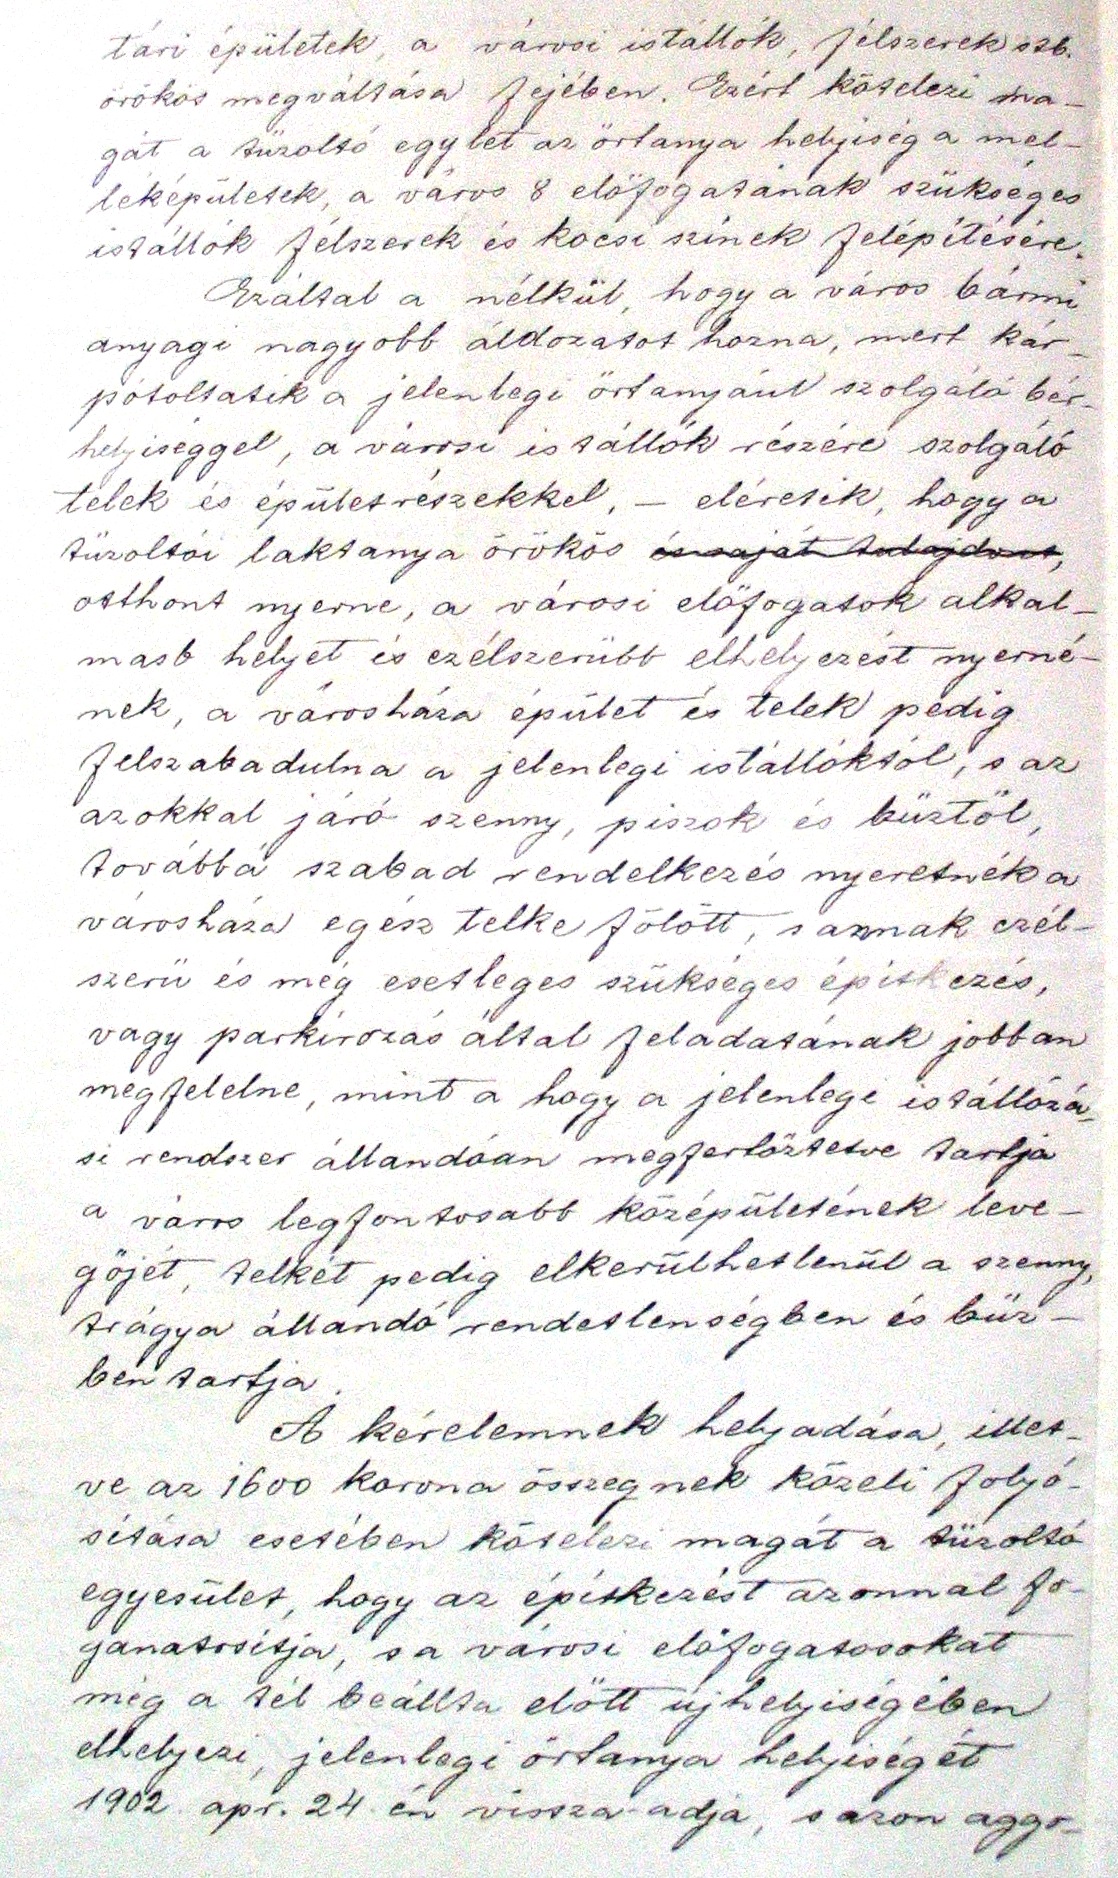 tári épületek, a városi istállók, félszerek stb.
örökös megváltása fejében. Ezért kötelezi ma-
gát a tüzoltó egylet az örtanya helyiség a mel-
léképületek, a város 8 előfogatának szükséges
istállók félszerek és kocsi színek felépítésére.
Ezáltal a nélkül, hogy a város bármi
anyagi nagyobb áldozatot hozna, mert kár-
pótoltatik a jelenlegi örtanyául szolgáló bér-
helyiséggel, a városi istállók részére szolgáló
telek és épületrészekkel, – eléretik, hogy a
tüzoltói laktanya örökös és saját tulajdont,
otthont nyerne, a városi előfogatok alkal-
masb helyet és czélszerübb elhelyezést nyerné-
nek, a városháza épület és telek pedig
felszabadulna a jelenlegi istállóktól, s az
azokkal járó szenny, piszok és büztől,
továbbá szabad rendelkezés nyeretnék a
városháza egész telke fölött, s annak czél-
szerü és még esetleges szükséges építkezés,
vagy parkírozás által feladatának jobban
megfelelne, mint a hogy a jelenlege istállózá-
si rendszer állandóan megfertőztetve tartja
a város legfontosabb középületének leve-
gőjét, telkét pedig elkerülhetlenül a szenny,
trágya állandó rendetlenségben és büz-
ben tartja.
A kérelemnek helyadása, illet-
ve az 1600 korona összegnek közeli folyó-
sítása esetében kötelezi magát a tüzoltó
egyesület, hogy az építkezést azonnal fo-
ganatosítja, s a városi előfogatosokat
még a tél beállta előtt új helyiségében
elhelyezi, jelenlegi örtanya helyiségét
1902. apr. 24 én vissza adja, s azon aggo-